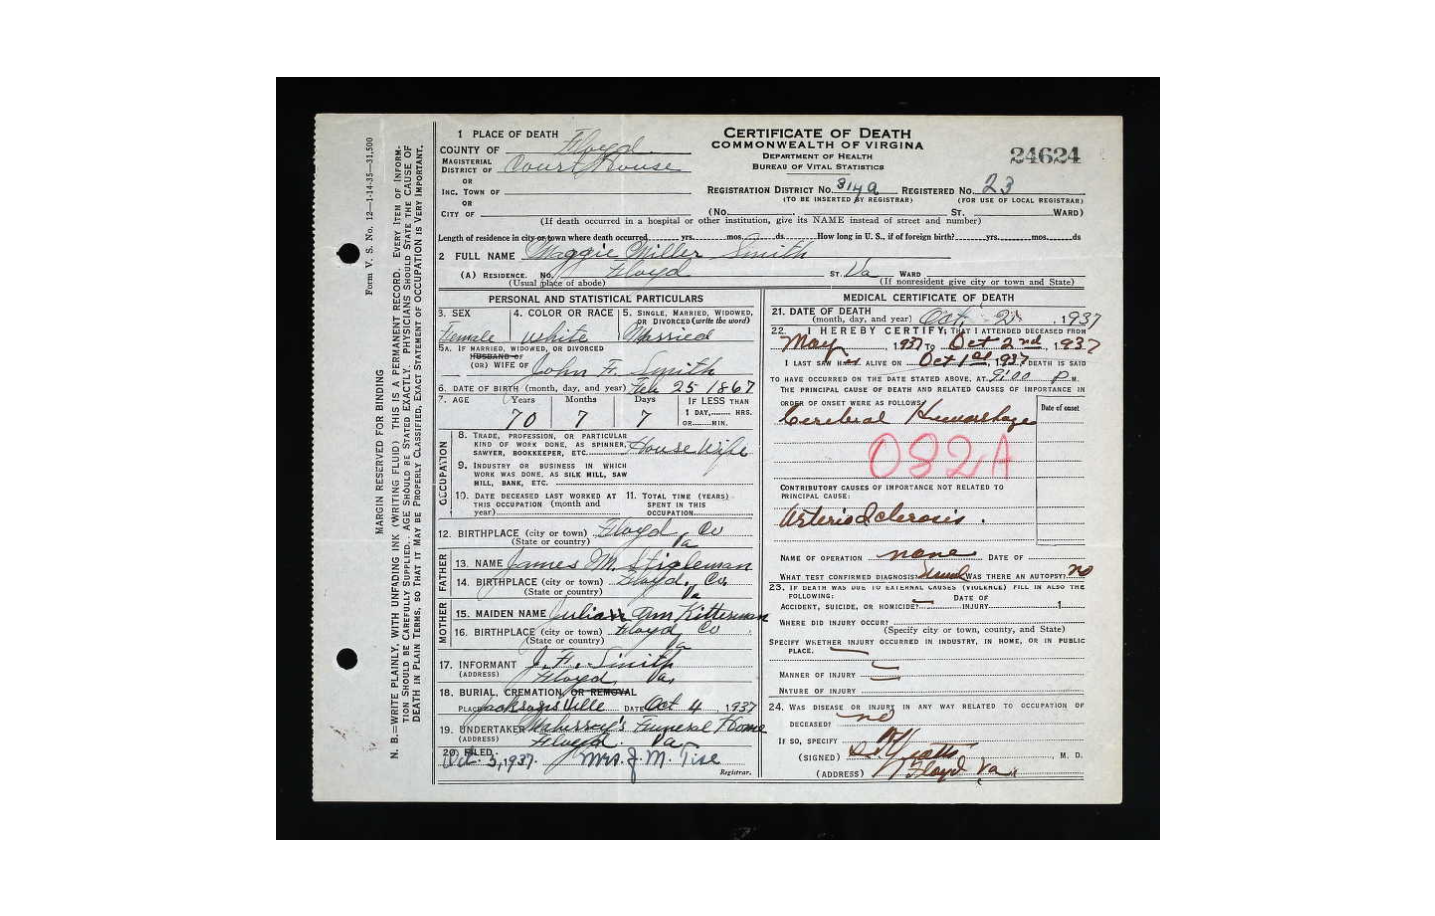 Form V. S. No. 12—1-14-35—31,500
MARGIN RESERVED FOR BINDING
N. B.—WRITE PLAINLY, WITH UNFADING INK (WRITING FLUID) THIS IS A PERMANENT RECORD. EVERY ITEM OF INFORM-
TION SHOULD BE CAREFULLY SUPPLIED. AGE SHOULD BE STATED EXACTLY. PHYSICIANS SHOULD STATE THE CAUSE OF
DEATH IN PLAIN TERMS, SO THAT IT MAY BE PROPERLY CLASSIFIED. EXACT STATEMENT OF OCCUPATION IS VERY IMPORTANT.
1 PLACE OF DEATH
COUNTY OF Floyd
MAGISTERIAL
DISTRICT OF Court House
OR
INC. TOWN OF
OR
CITY OF
CERTIFICATE OF DEATH
COMMONWEALTH OF VIRGINIA
DEPARTMENT OF HEALTH
BUREAU OF VITAL STATISTICS
24624
REGISTRATION DISTRICT NO. 314a REGISTERED NO. 23
(TO BE INSERTED BY REGISTRAR) (FOR USE OF LOCAL REGISTRAR)
(No. ST. WARD)
(If death occurred in a hospital or other institution, give its NAME instead of street and number)
Length of residence in city or town where death occurred yrs. mos. ds. How long in U. S., if of foreign birth? yrs. mos. ds
2 FULL NAME Maggie Miller Smith
(A) RESIDENCE. No. Floyd ST. Va WARD
(Usual place of abode) (If nonresident give city or town and State)
PERSONAL AND STATISTICAL PARTICULARS
3. SEX 4. COLOR OR RACE 5. SINGLE, MARRIED, WIDOWED,
OR DIVORCED (write the word)
Female white Married
5A. IF MARRIED, WIDOWED, OR DIVORCED
HUSBAND of
(OR) WIFE OF John F. Smith
6. DATE OF BIRTH (month, day, and year) Feb 25 1867
7. AGE Years Months Days IF LESS THAN
1 DAY, HRS.
OR MIN.
70 7 7
OCCUPATION
8. TRADE, PROFESSION, OR PARTICULAR
KIND OF WORK DONE, AS SPINNER,
SAWYER, BOOKKEEPER, ETC. House Wife
9. INDUSTRY OR BUSINESS IN WHICH
WORK WAS DONE, AS SILK MILL, SAW
MILL, BANK, ETC.
10. DATE DECEASED LAST WORKED AT 11. TOTAL TIME (YEARS)
THIS OCCUPATION (month and SPENT IN THIS
year) OCCUPATION
12. BIRTHPLACE (city or town) Floyd Co
(State or country) Va
FATHER
13. NAME James M. Stigleman
14. BIRTHPLACE (city or town) Floyd, Co.
(State or country) Va
MOTHER
15. MAIDEN NAME Julian Ann Kitterman
16. BIRTHPLACE (city or town) Floyd Co
(State or country) Va
17. INFORMANT J. F. Smith
(ADDRESS) Floyd, Va,
18. BURIAL, CREMATION, OR REMOVAL
PLACE Jacksonville DATE Oct 4, 1937
19. UNDERTAKER Funeral Home
(ADDRESS) Floyd. Va
20. FILED
Oct. 3, 1937. Mrs. J. M. Tise
Registrar.
MEDICAL CERTIFICATE OF DEATH
21. DATE OF DEATH
(month, day, and year) Oct, - 2, 1937
22. I HEREBY CERTIFY, THAT I ATTENDED DECEASED FROM
May, 1937, TO Oct 2nd, 1937
I LAST SAW her ALIVE ON Oct 1st, 1937 DEATH IS SAID
TO HAVE OCCURRED ON THE DATE STATED ABOVE, AT 9:00 P M.
THE PRINCIPAL CAUSE OF DEATH AND RELATED CAUSES OF IMPORTANCE IN
ORDER OF ONSET WERE AS FOLLOWS: Date of onset
Cerebral Hemorrhage
082A
CONTRIBUTORY CAUSES OF IMPORTANCE NOT RELATED TO
PRINCIPAL CAUSE:
Arteriosclerosis.
NAME OF OPERATION none DATE OF
WHAT TEST CONFIRMED DIAGNOSIS? usual WAS THERE AN AUTOPSY? no
23. IF DEATH WAS DUE TO EXTERNAL CAUSES (VIOLENCE) FILL IN ALSO THE
FOLLOWING: DATE OF
ACCIDENT, SUICIDE, OR HOMICIDE? INJURY 1
WHERE DID INJURY OCCUR?
(Specify city or town, county, and State)
SPECIFY WHETHER INJURY OCCURRED IN INDUSTRY, IN HOME, OR IN PUBLIC
PLACE.
MANNER OF INJURY
NATURE OF INJURY
24. WAS DISEASE OR INJURY IN ANY WAY RELATED TO OCCUPATION OF
DECEASED? no
IF SO, SPECIFY
(SIGNED) M. D.
(ADDRESS) Floyd Va